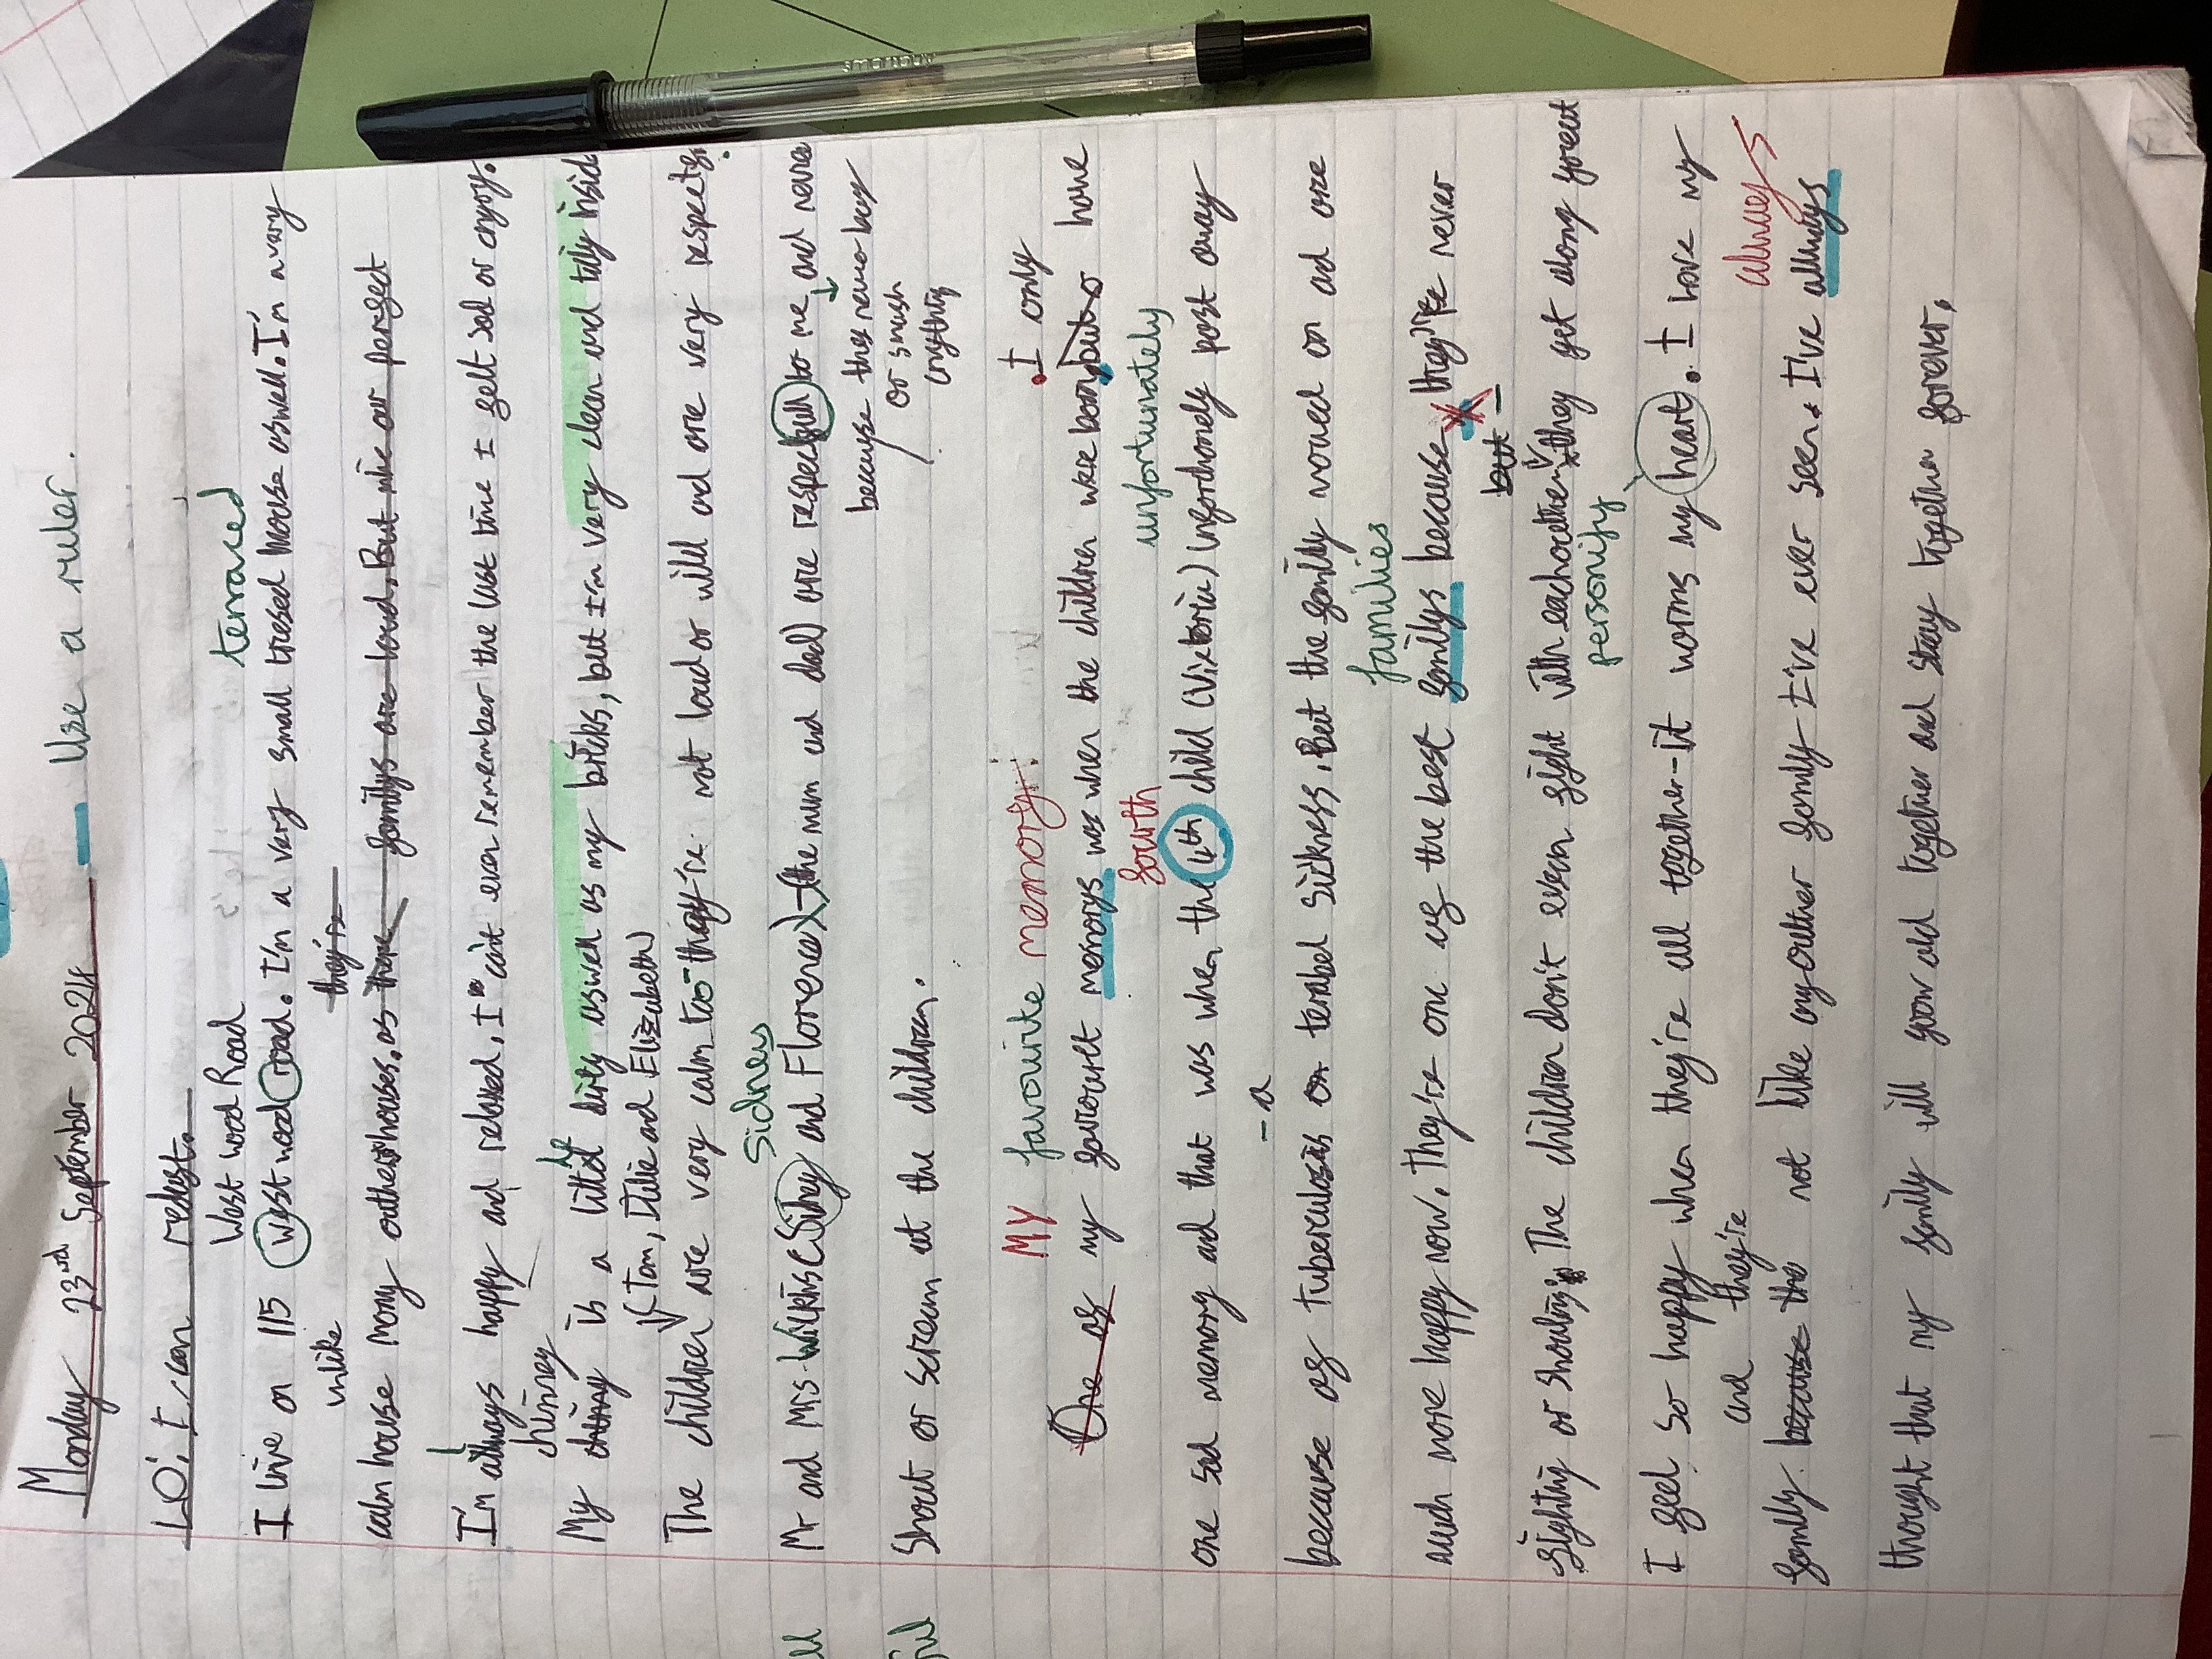 Monday 23rd September 2024 - Use a ruler.
LO: I can redraft.
West wood Road terraced
I live on 115 West wood road. I'm a very small tresed house aswell. I'm a very
unlike they're
calm house mony outher houses. as there familys are loud. But mie ar perfect
I'm allways happy and relaxed, I can't even remember the last time I felt sad or angry.
chimney
My chimy is a little dirty aswell as my bricks, but I'm very clean and tidy insid
Tom, Millie and Elizabeth
The children are very calm too - they're not loud or wild and are very respectful.
Sidney
Mr and Mrs Wilkins (Sidney and Florence) - (the mum and dad) are respecfull to me and never
because they never bang
or smash
anything
Shout or scream at the children.
My favourite memory . I only
One of my favourit memorys was when the children were born, but have
fourth unfortunately
one sad memory and that was when the 4th child (Victoria) unfordhanely past away
- a
because of tuberculosis on terabel sickness. But the family moved on and are
families
much more happy now. They're one of the best familys because they're never
but -
fighting or shouting. The children don't even fight with eachoether, they get along great
personify
I feel so happy when they're all together - it worms my heart. I love my
and they're always
family because the not like any outher family I've ever seen. I've allways
thought that my family will grow old together and stay together forever.